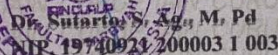 Dr. Sutarto, S. Ag., M. Pd
NIP. 19740921 200003 1 003